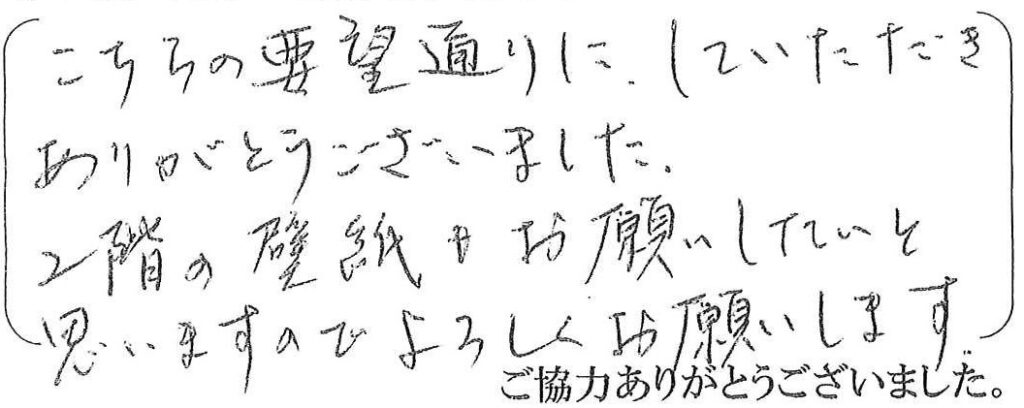 こちらの要望通りに、していただき
ありがとうございました。
2階の壁紙もお願いしたいと
思いますのでよろしくお願いします。
ご協力ありがとうございました。